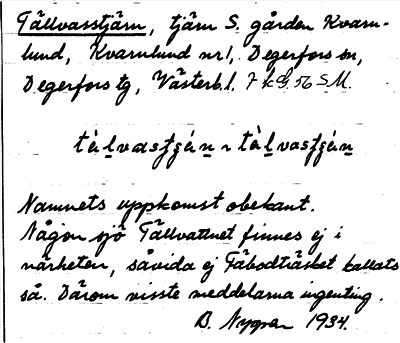 Tällvasstjärn, tjärn S. gården Kvarn-
lund, Kvarnlund nr 1, Degerfors sn,
Degerfors tg, Västerb. l. 7 k G. 56 S M.
Namnets uppkomst obekant.
Någon sjö Tällvattnet finnes ej i
närheten, såvida ej Fäbodträsket kallats
så. Därom visste meddelarna ingenting.
B. Nygren 1934.